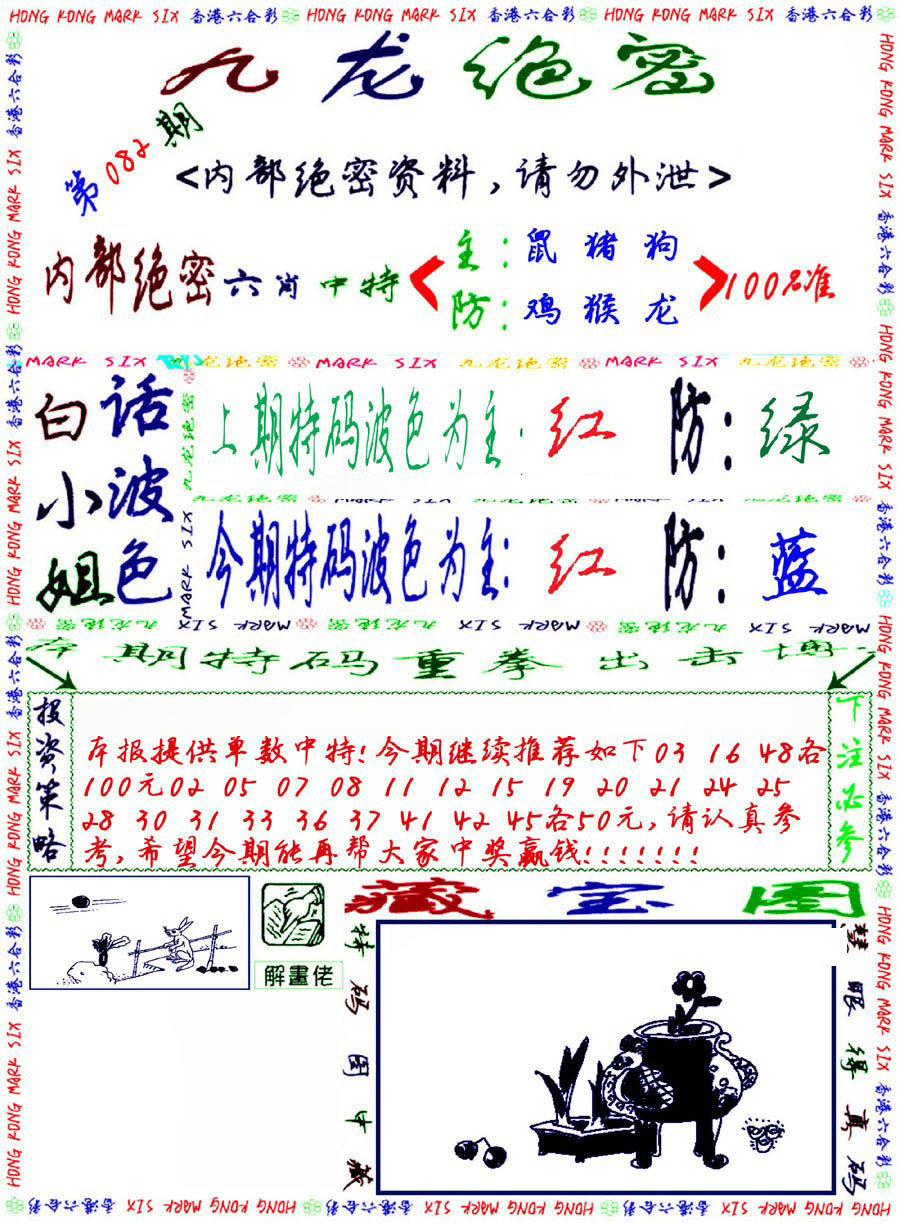 HONG KONG MARK SIX 香港六合彩 HONG KONG MARK SIX 香港六合彩 HONG KONG MARK SIX 香港六合彩
九龙绝密
第082期
<内部绝密资料,请勿外泄>
内部绝密六肖中特
主:鼠猪狗
防:鸡猴龙
100%准
MARK SIX 九龙绝密 MARK SIX 九龙绝密 MARK SIX 九龙绝密
白话
小波
姐色
上期特码波色为主:红 防:绿
今期特码波色为主:红 防:蓝
MARK SIX 九龙绝密 MARK SIX 九龙绝密 MARK SIX 九龙绝密
本期特码重拳出击博
投资策略
本报提供单数中特!今期继续推荐如下03 16 48各
100元02 05 07 08 11 12 15 19 20 21 24 25
28 30 31 33 36 37 41 42 45各50元,请认真参
考,希望今期能再帮大家中奖赢钱!!!!!!!
下注必参
解畫佬
藏宝图
特码图中藏
慧眼得真码
HONG KONG MARK SIX 香港六合彩 HONG KONG MARK SIX 香港六合彩 HONG KONG MARK SIX 香港六合彩